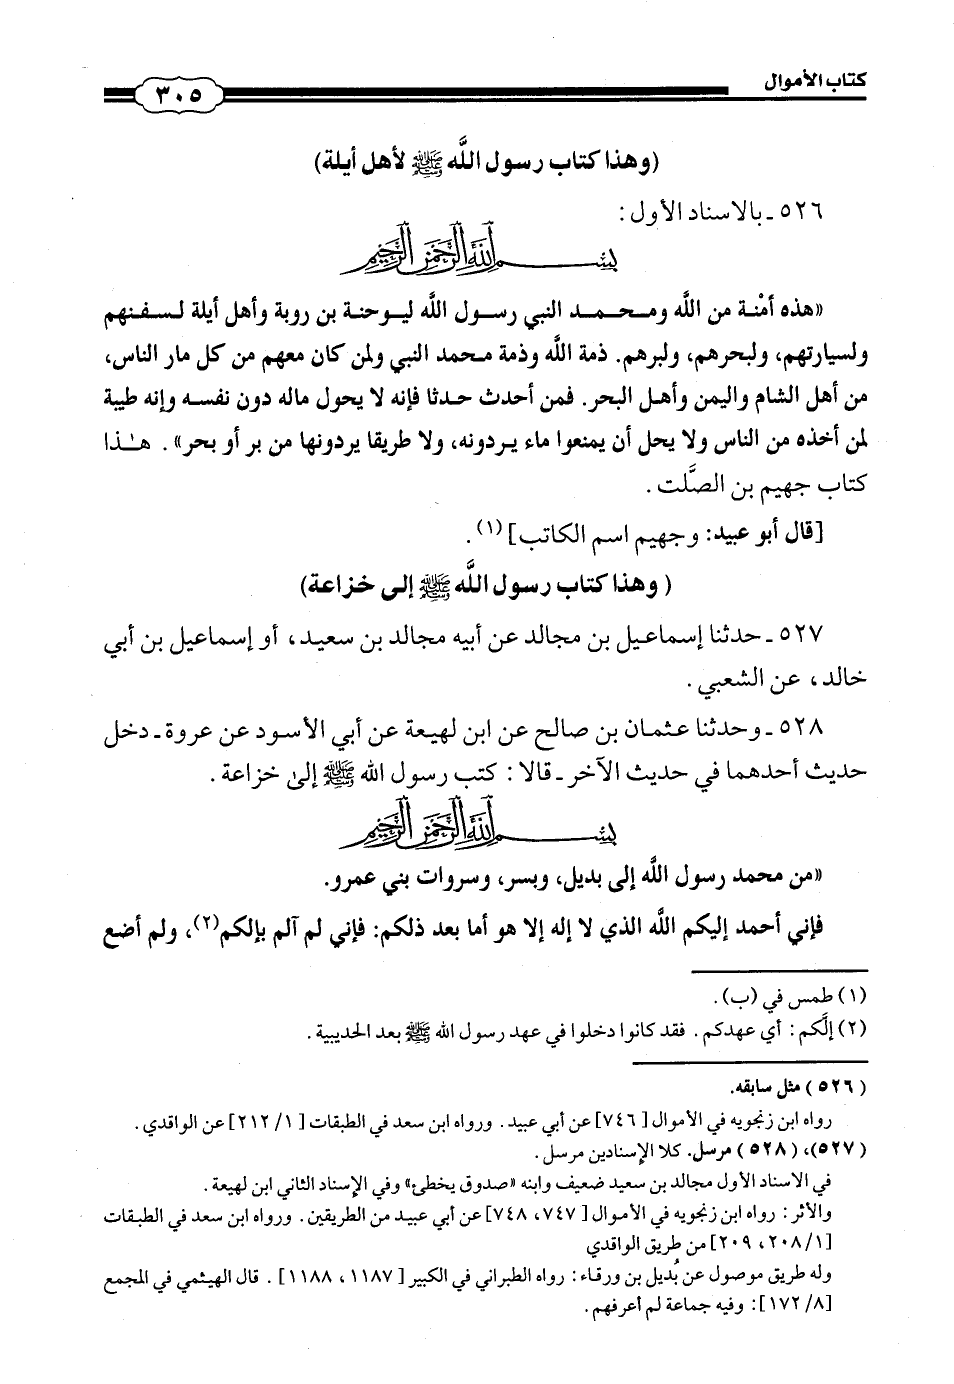 كتاب الأموال
٣٠٥
(وهذا كتاب رسول اللَّه ﷺ لأهل أيلة)
٥٢٦ ـ بالاسناد الأول:
بسم الله الرحمن الرحيم
«هذه أمْنة من اللَّه ومحمد النبي رسول اللَّه ليوحنة بن روبة وأهل أيلة لسفنهم
ولسيارتهم، ولبحرهم، ولبرهم. ذمة اللَّه وذمة محمد النبي ولمن كان معهم من كل مار الناس،
من أهل الشام واليمن وأهل البحر. فمن أحدث حدثا فإنه لا يحول ماله دون نفسه وإنه طيبة
لمن أخذه من الناس ولا يحل أن يمنعوا ماء يردونه، ولا طريقا يردونها من بر أو بحر». هٰذا
كتاب جهيم بن الصَّلت.
[قال أبو عبيد: وجهيم اسم الكاتب](١).
( وهذا كتاب رسول اللَّه ﷺ إلى خزاعة)
٥٢٧ ـ حدثنا إسماعيل بن مجالد عن أبيه مجالد بن سعيد، أو إسماعيل بن أبي
خالد، عن الشعبي.
٥٢٨ ـ وحدثنا عثمان بن صالح عن ابن لهيعة عن أبي الأسود عن عروة ـ دخل
حديث أحدهما في حديث الآخر ـ قالا: كتب رسول الله ﷺ إلىٰ خزاعة.
بسم الله الرحمن الرحيم
«من محمد رسول اللَّه إلى بديل، وبسر، وسروات بني عمرو.
فإني أحمد إليكم اللَّه الذي لا إله إلا هو أما بعد ذلكم: فإني لم آلم بإلكم(٢)، ولم أضع
(١) طمس في (ب).
(٢) إلَّكم: أي عهدكم. فقد كانوا دخلوا في عهد رسول الله ﷺ بعد الحديبية.
(٥٢٦) مثل سابقه.
رواه ابن زنجويه في الأموال [٧٤٦] عن أبي عبيد. ورواه ابن سعد في الطبقات [١/ ٢١٢] عن الواقدي.
(٥٢٧)، (٥٢٨) مرسل. كلا الإسنادين مرسل.
في الاسناد الأول مجالد بن سعيد ضعيف وابنه «صدوق يخطئ» وفي الإسناد الثاني ابن لهيعة.
والأثر: رواه ابن زنجويه في الأموال [٧٤٧، ٧٤٨] عن أبي عبيد من الطريقين. ورواه ابن سعد في الطبقات
[١/ ٢٠٨، ٢٠٩] من طريق الواقدي
وله طريق موصول عن بُديل بن ورقاء: رواه الطبراني في الكبير [١١٨٧، ١١٨٨]. قال الهيثمي في المجمع
[٨/ ١٧٢]: وفيه جماعة لم أعرفهم.